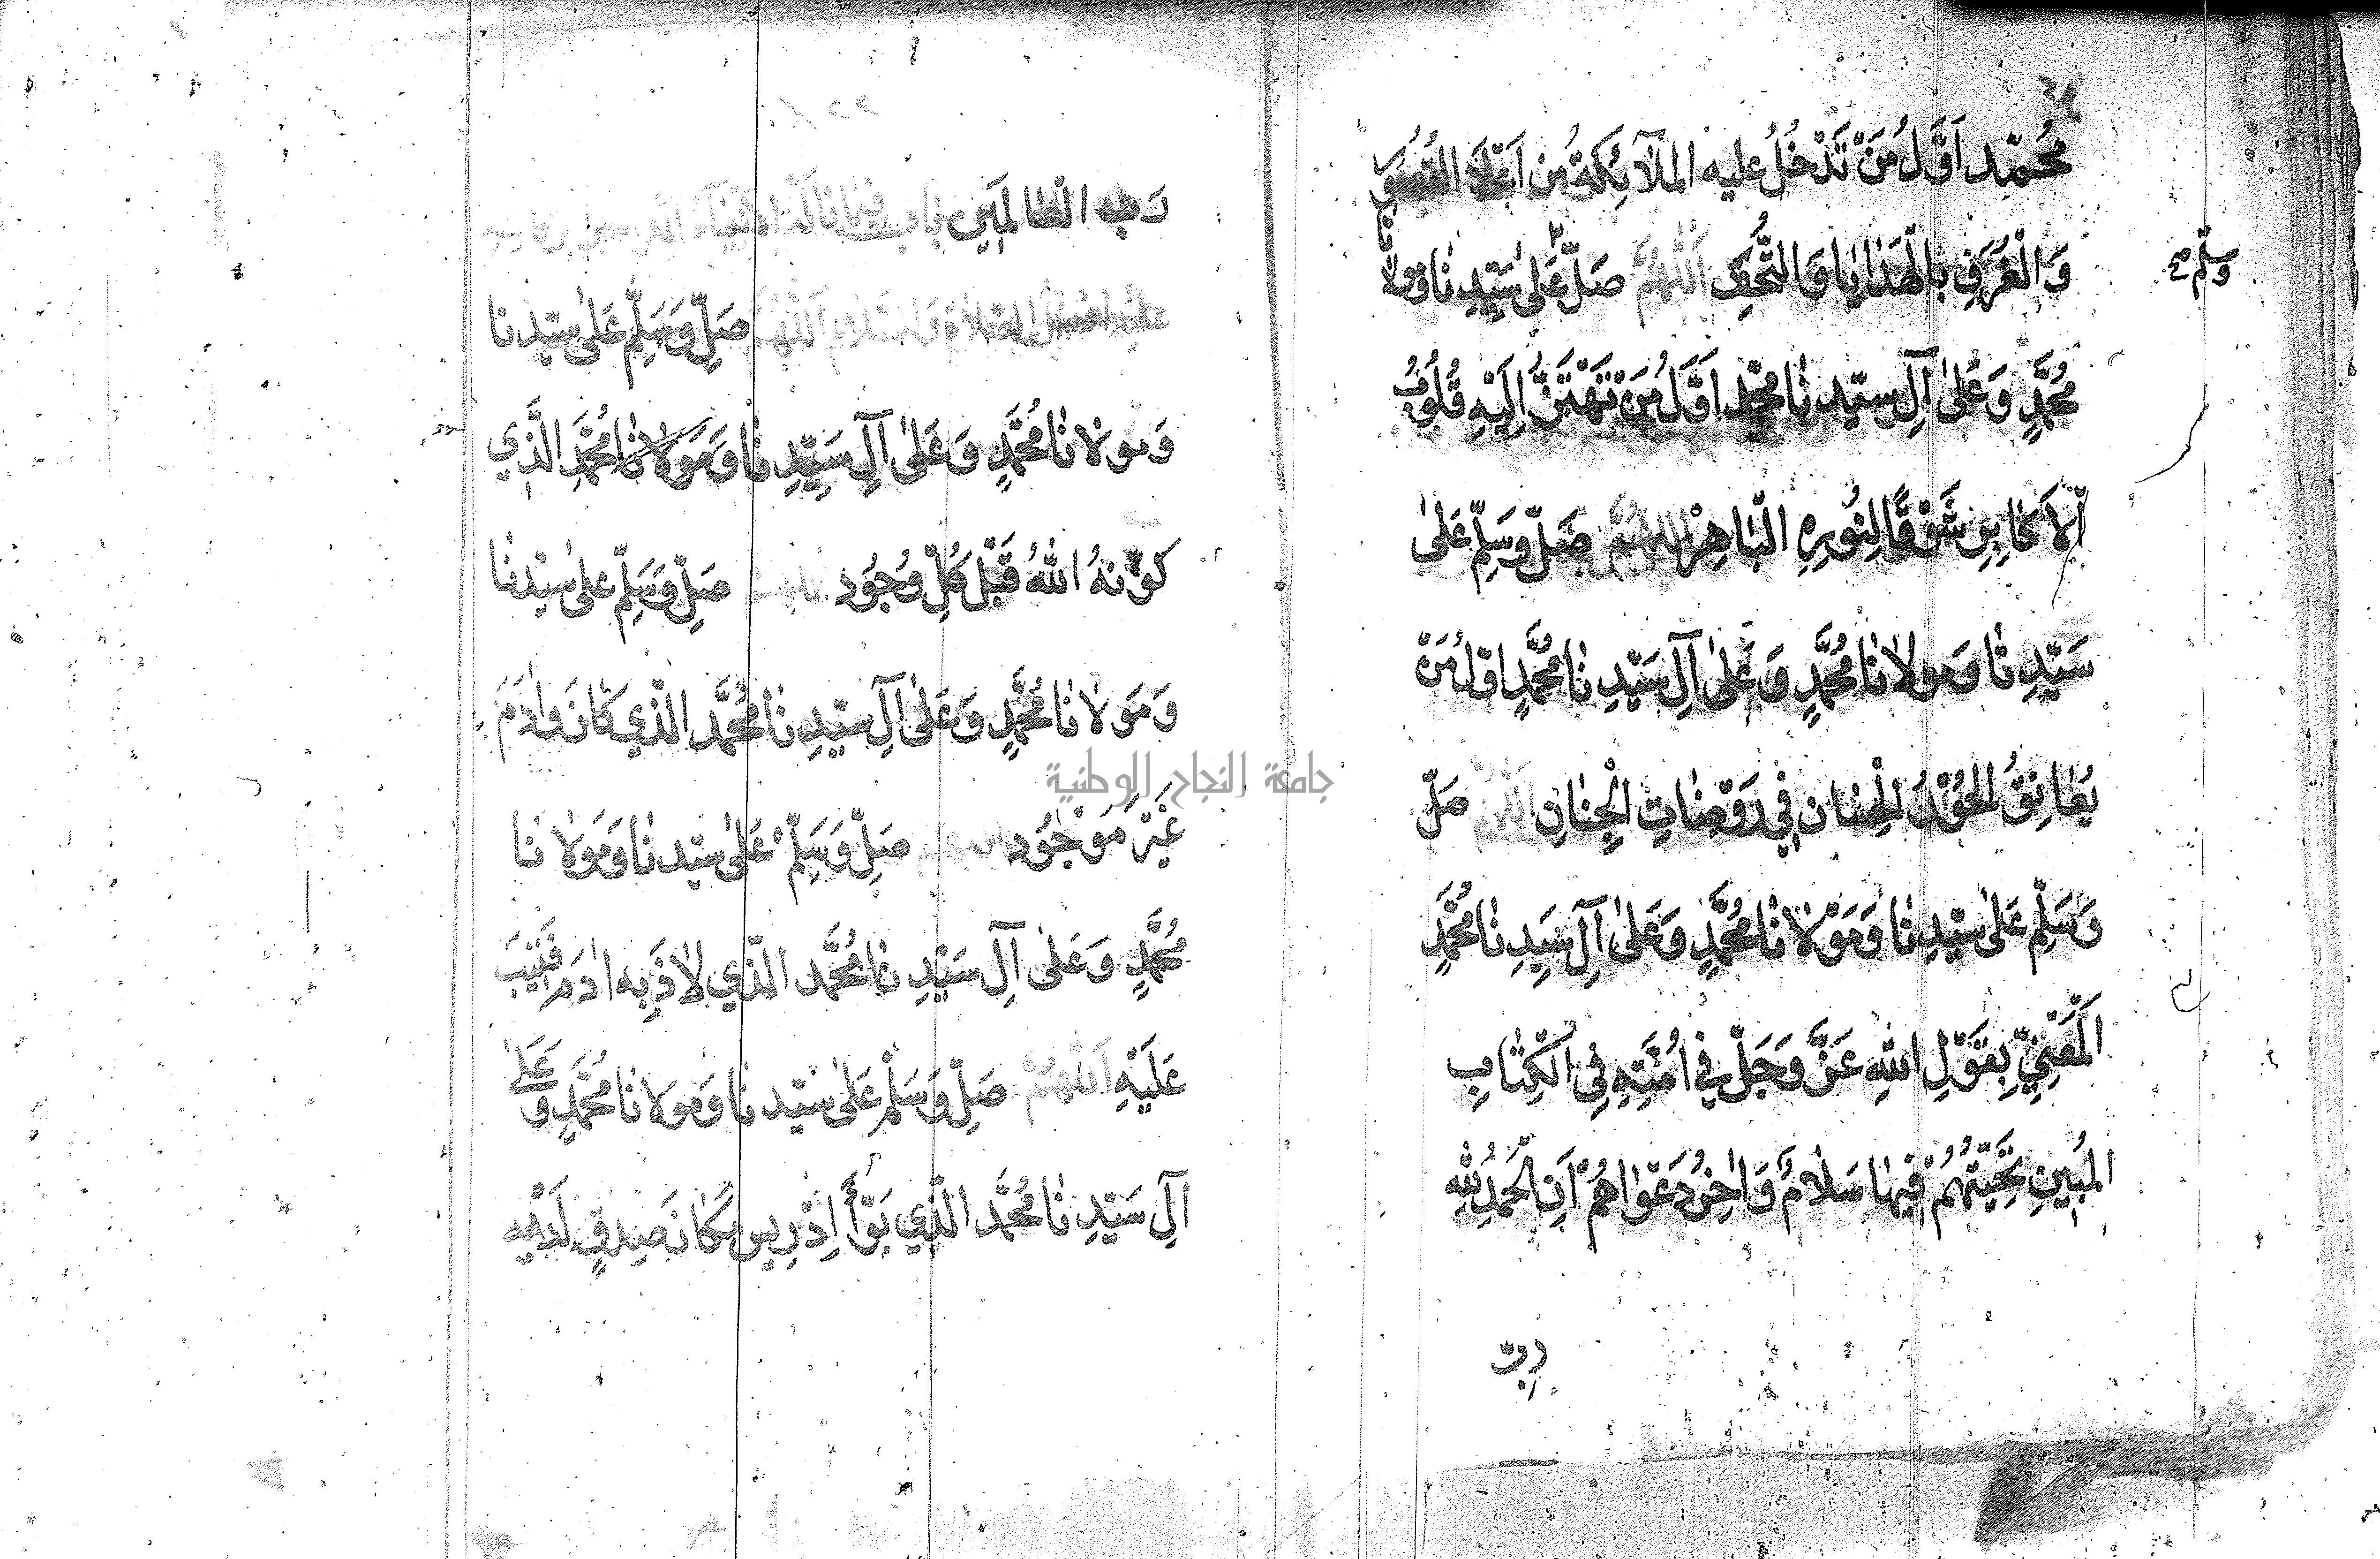 مُحَمّد اَوَّلُ مَنْ تَدْخُلُ عليه الملآئِكَةُ مِن اَعْلَا القُصُور
وَالْغُرَفِ بالْهَدَايا وَالتُّحَفِ اَللّٰهُمَّ صَلِّ عَلىٰ سَيّدِنا ومولانا
وسلّم صح
مُحَمَّدٍ وَعَلىٰ آلِ سيّدنا محمّد اَوَّلُ مَنْ تَهْتَزُّ اِلَيْهِ قُلُوبُ
اْلاَكابِرِ شَوْقًا لِنُورِهِ الْبَاهِرْ اللهُمَّ صَلّ وسَلِّمْ عَلىٰ
سَيّدِنا ومَولانا مُحَمَّدٍ وَعَلىٰ آلِ سَيّدِنا مُحَمَّدٍ اوّلُ مَنْ
يُعَانِقُ الحُوْرُ الحِسَان فِي رَوْضَاتِ الْجِنَانِ اَللّٰهُمَّ صَلِّ
وَسَلِّمْ عَلىٰ سَيّدِنا وَمَوْلانا مُحَمَّدٍ وَعَلىٰ آلِ سَيِّدِنا مُحَمَّدٍ
اَلْمَعْنِيِّ بِقَوْلِ اللهِ عَزَّ وَجَلَّ فِي اُمَّتِهِ فِي الْكِتَابِ
المُبينِ تَحِيَّتُهُمْ فِيهَا سَلاَمٌ وَاٰخِرُ دَعْوَاهُمْ اَنِ الْحَمْدُ لِلّٰهِ
رَبّ
رَبِّ الْعَالَمِين باب فيما ناله الانبياء
عليه افضل الصّلاة والسّلام اَللّٰهُمَّ صَلِّ وَسَلِّمْ عَلىٰ سيّدِنا
وَمولانا مُحَمَّدٍ وَعَلىٰ آلِ سَيِّدِنا وَمَوْلاَنا مُحَمَّدِ الَّذِي
كوَّنَهُ اللهُ قَبْلَ كُلِّ وُجُود اللهم صَلِّ وَسَلِّمْ على سيّدنا
وَمَولانا مُحَمَّدٍ وَعَلىٰ آلِ سيّدِنا مُحَمَّد الَّذي كَانَ وَاٰدَمَ
غَيْرَ مَوْجُود اللهم صَلِّ وَسَلِّمْ عَلىٰ سيّدنا وَمَولانا
مُحَمَّدٍ وَعَلىٰ آلِ سَيّدِنا مُحَمَّد الَّذي لاَذَ بِه اٰدَم فَتِيبَ
عَلَيْهِ اَللّٰهُمَّ صَلِّ وَسَلّمْ عَلىٰ سَيّدنا وَمَولانا مُحَمَّدٍ وَعَلىٰ
آلِ سَيّدِنا مُحَمَّد الَّذي بَوَّأَ اِدْرِيس مَكَانَ صِدقٍ لَدَيْهِ
جامعة النجاح الوطنية